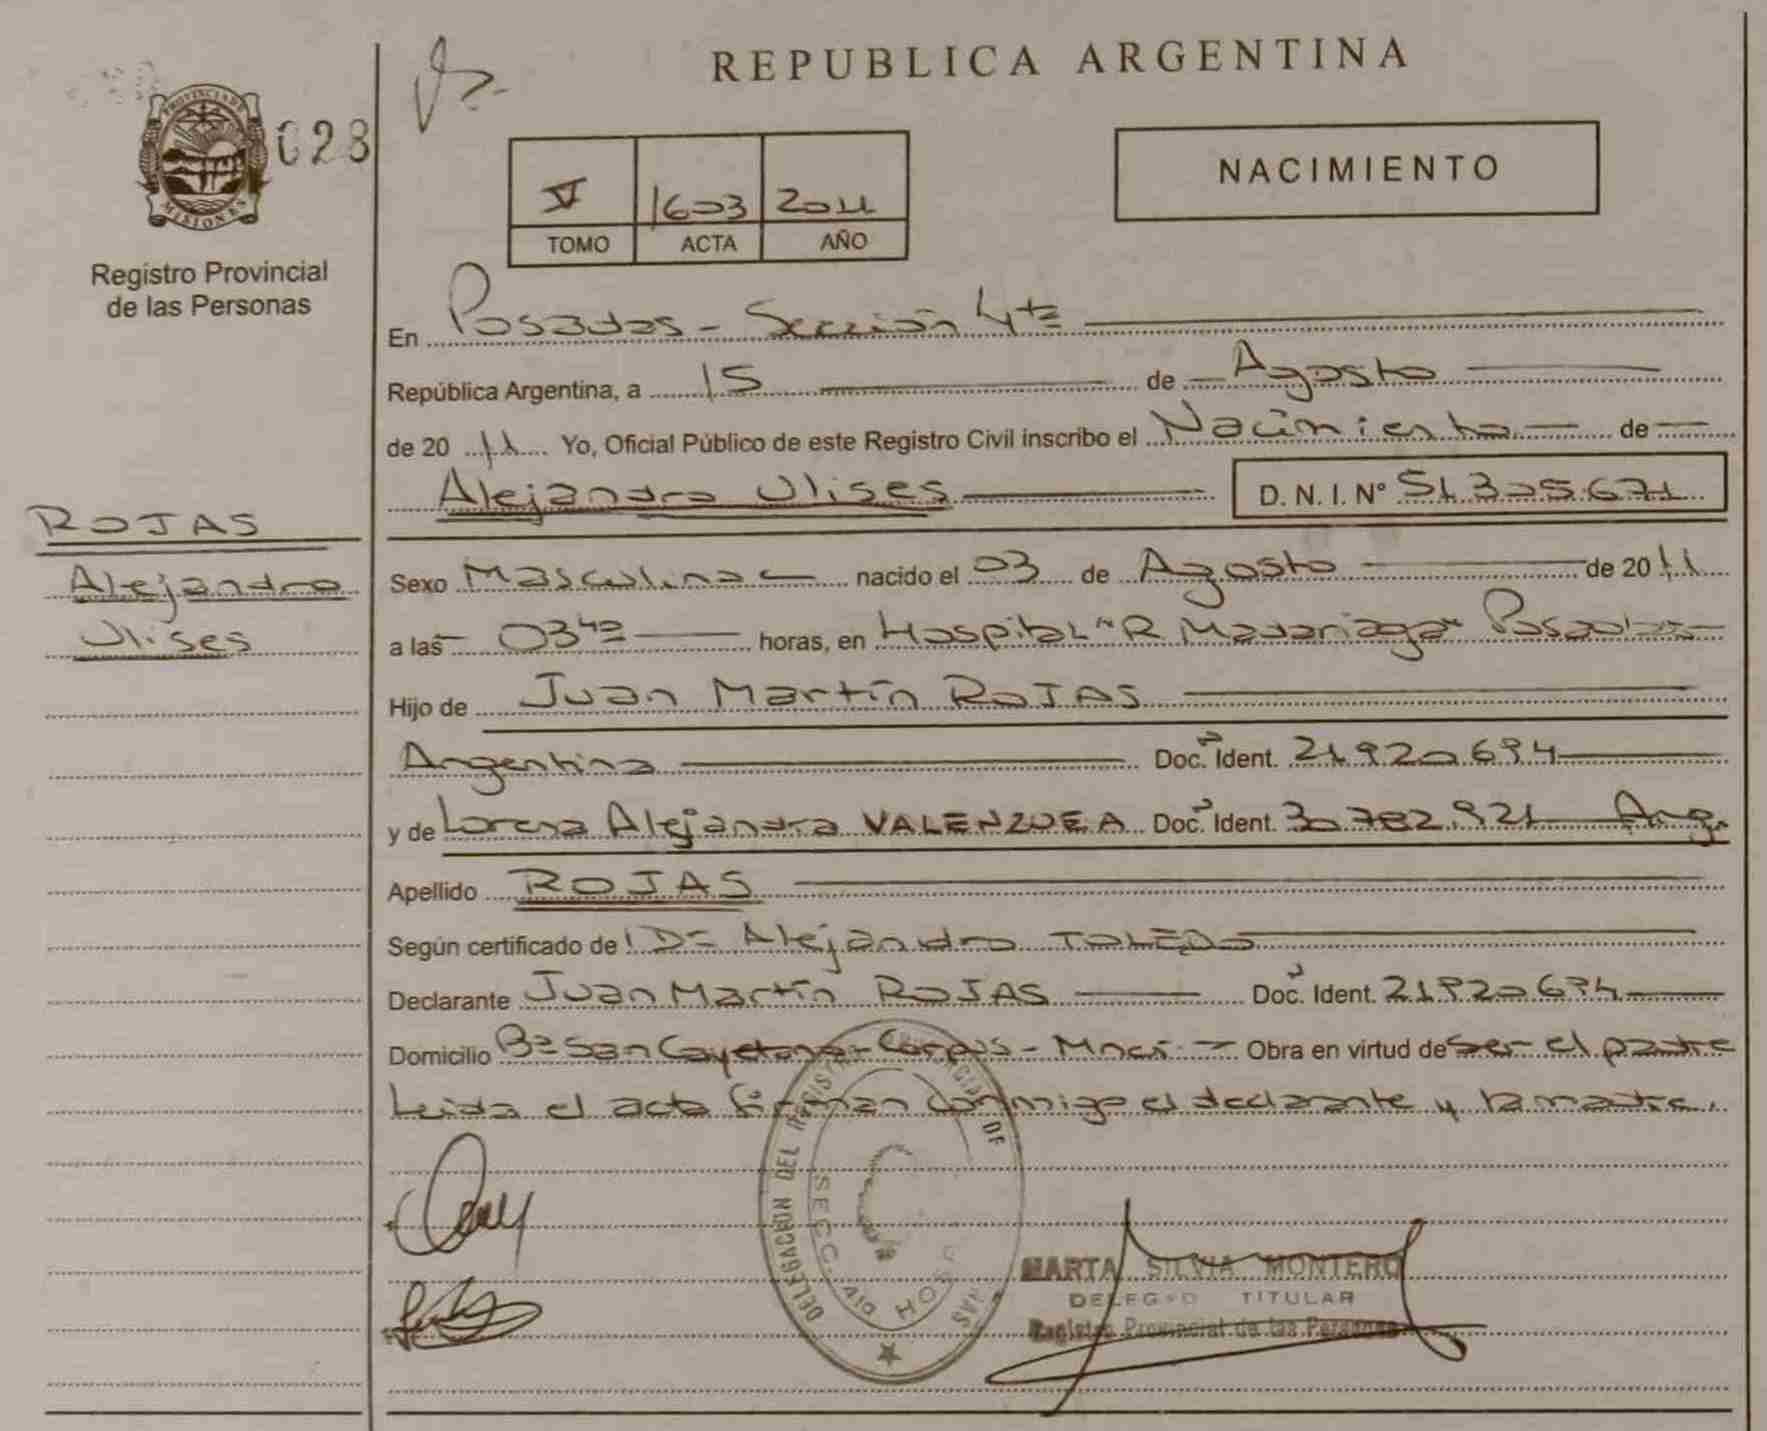 REPUBLICA ARGENTINA
PROVINCIA DE
MISIONES
028
Registro Provincial
de las Personas
V 1603 2011
TOMO ACTA AÑO
NACIMIENTO
En Posadas - Sección 4ta
República Argentina, a 15 de Agosto
de 20 11 Yo, Oficial Público de este Registro Civil inscribo el Nacimiento de
Alejandro Ulises D. N. I. Nº 51.305.671
ROJAS
Alejandro
Ulises
Sexo Masculino nacido el 03 de Agosto de 20 11
a las 03 40 horas, en Hospital "R Madariaga" Posadas
Hijo de Juan Martín ROJAS
Argentino Doc. Ident. 21.920.694
y de Lorena Alejandra VALENZUEA Doc. Ident. 30.782.921 Arg.
Apellido ROJAS
Según certificado de: Dr Alejandro TOLEDO
Declarante Juan Martín ROJAS Doc. Ident. 21.920.694
Domicilio Bº San Cayetano - Corpus - Mnes - Obra en virtud de ser el padre
Leida el acta firman conmigo el declarante y la madre.
DELEGACION DEL REGISTRO PROVINCIAL DE
SECC. HOSP
MARTA SILVIA MONTERO
DELEGAD TITULAR
Registro Provincial de las Personas